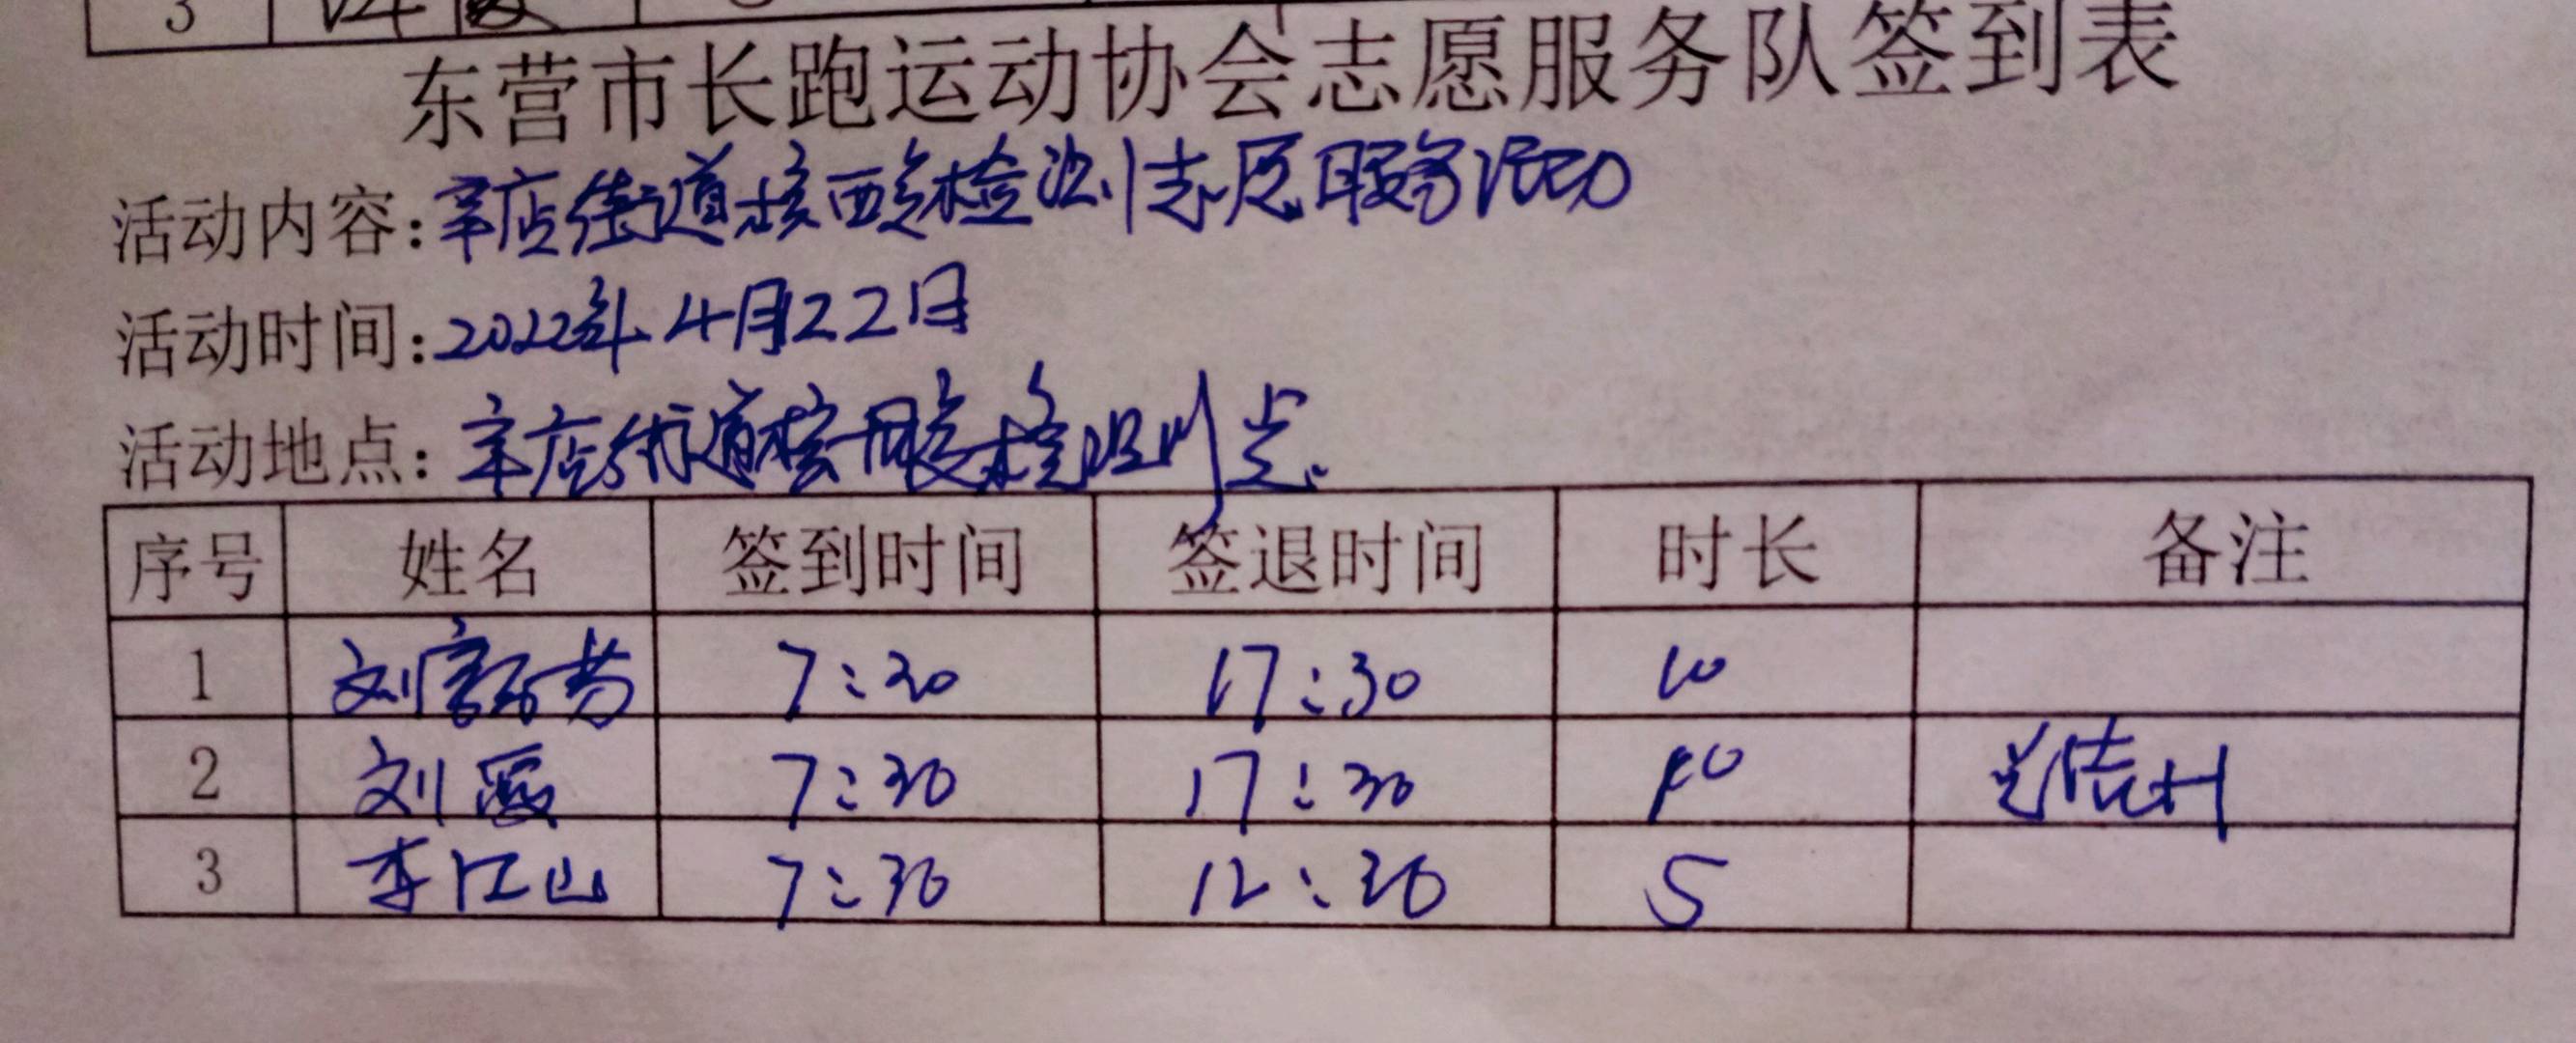 3
东营市长跑运动协会志愿服务队签到表
活动内容:辛店街道核酸检测志愿服务活动
活动时间:2022年4月22日
活动地点:辛店街道核酸检测点
序号 姓名 签到时间 签退时间 时长 备注
1 刘 7:30 17:30 10
2 刘霞 7:30 17:30 10
3 李江山 7:30 12:30 5